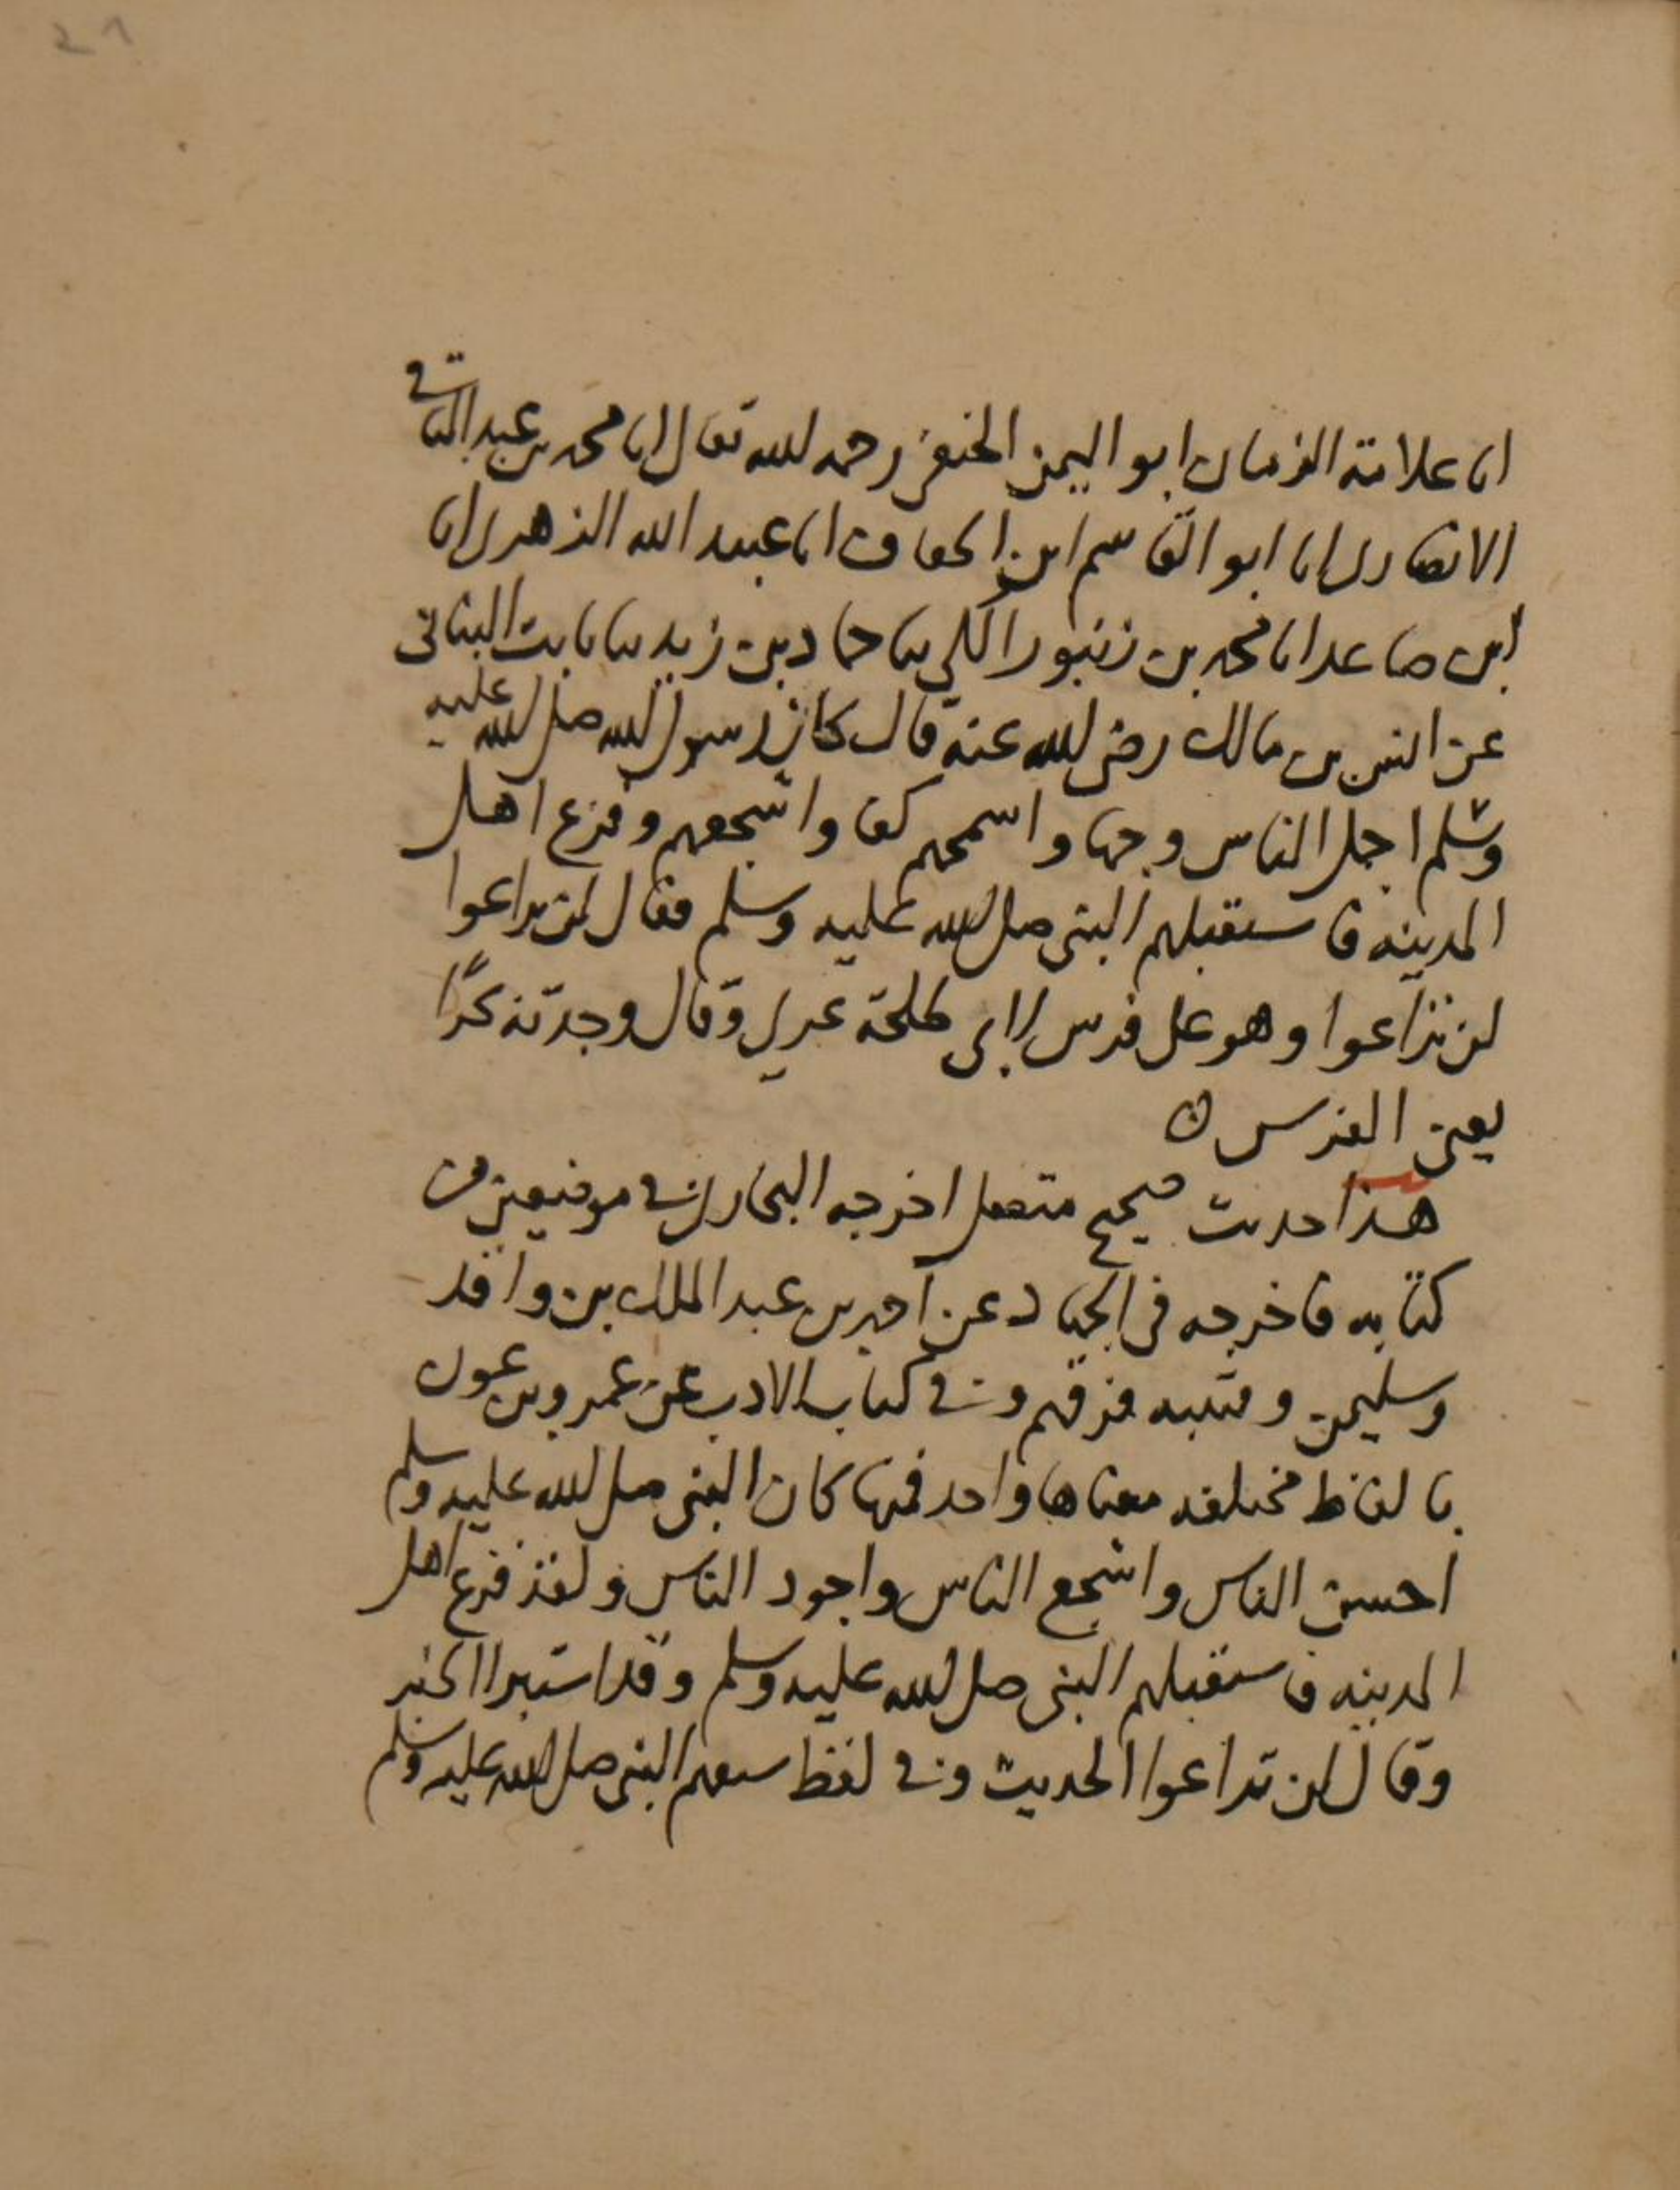 ٢١
انا علامة الزمان ابو اليمن الحنفى رحمه الله تعالى انا محمد بن عبد الباقى
الانصارى انا ابو القاسم ابن انا عبيد الله الزهرى انا
ابن صاعد انا محمد بن زنبور المكى ثنا حماد بن زيد ثنا ثابت البنانى
عن انس بن مالك رضى الله عنه قال كان رسول الله صلى الله عليه
وسلم اجمل الناس وجها واسمحهم كفا واشجعهم وفزع اهل
المدينه فاستقبلهم النبى صلى الله عليه وسلم فقال لن تراعوا
لن تراعوا وهو على فرس لابى طلحة عرى وقال وجدته بحرًا
يعنى الفرس ه
هذا حديث صحيح متصل اخرجه البخارى فى موضعين من
كتابه فاخرجه فى الجهاد عن احمد بن عبد الملك بن واقد
وسليمن وقتيبه فرقهم وفى كتاب الادب عن عمرو بن عون
بالفاظ مختلفه معناها واحد فمنها كان النبى صلى الله عليه وسلم
احسن الناس واشجع الناس واجود الناس ولقد فزع اهل
المدينه فاستقبلهم النبى صلى الله عليه وسلم وقد استبرا الخبر
وقال لن تراعوا الحديث وفى لفظ سبقهم النبى صلى الله عليه وسلم